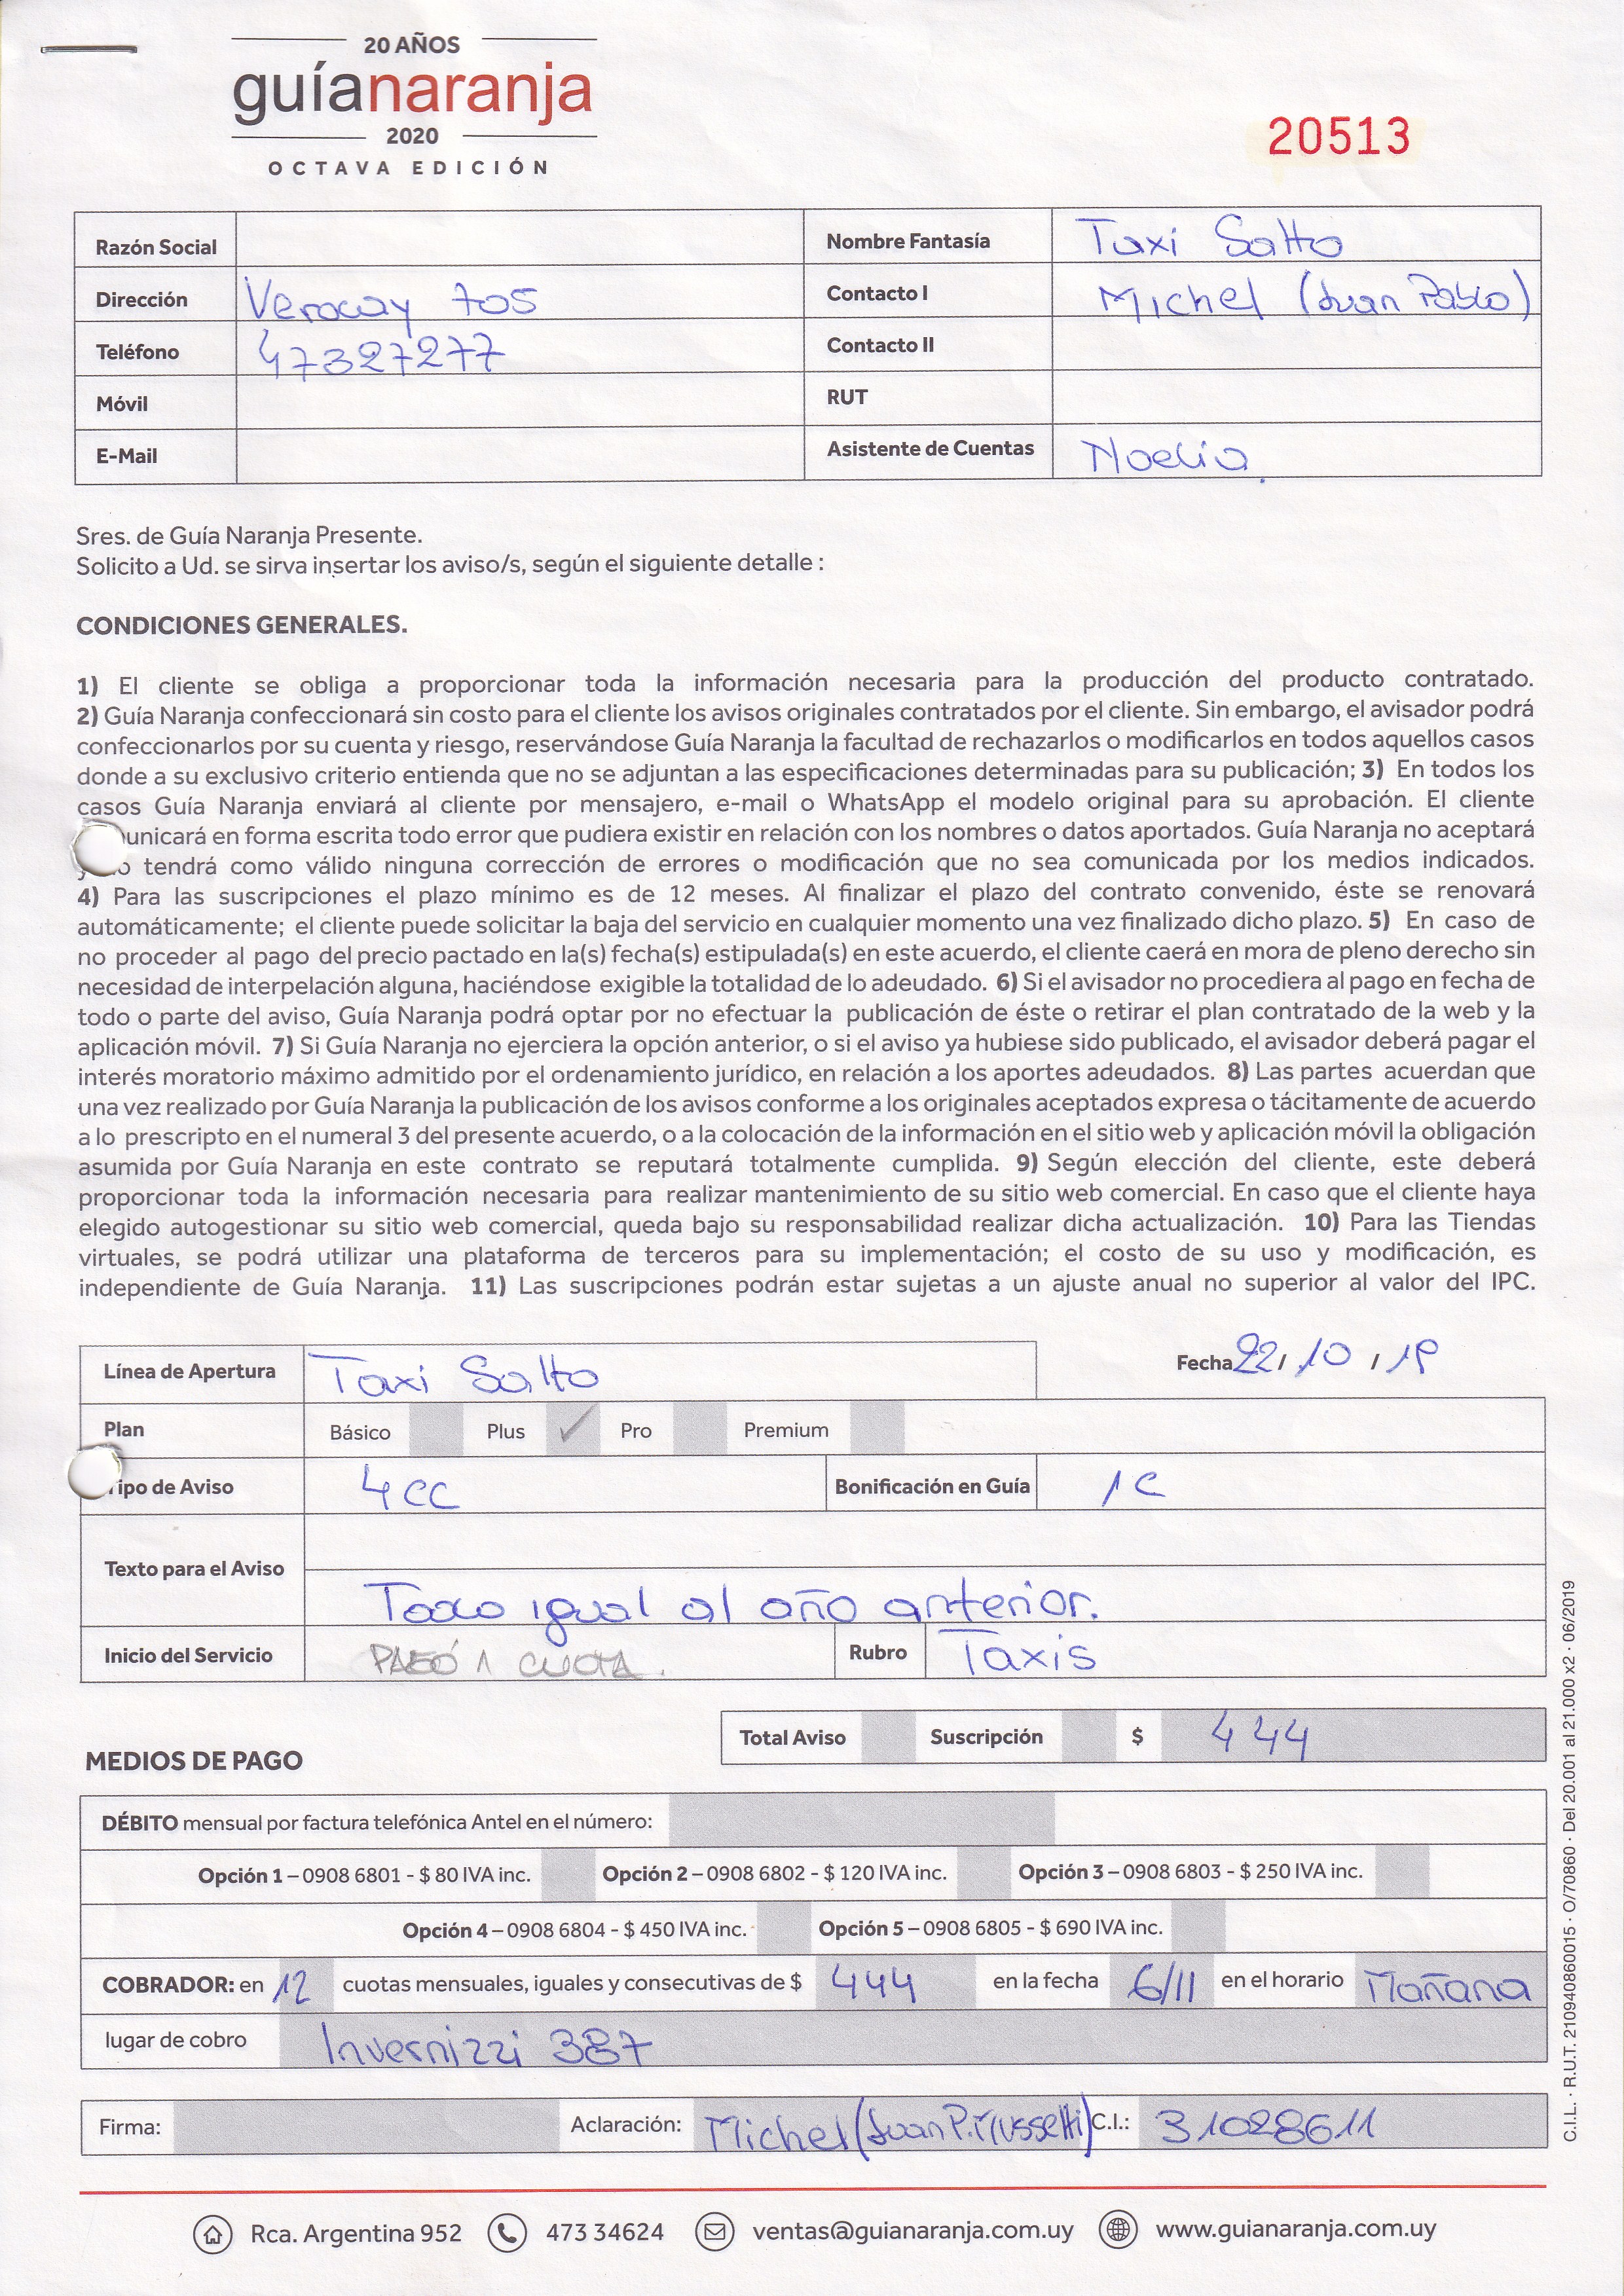 20 AÑOS
guíanaranja
2020
OCTAVA EDICIÓN
20513
Razón Social
Nombre Fantasía Taxi Salto
Dirección Veroway 705
Contacto I Michel (Juan Pablo)
Teléfono 47327277
Contacto II
Móvil
RUT
E-Mail
Asistente de Cuentas Noelia
Sres. de Guía Naranja Presente.
Solicito a Ud. se sirva insertar los aviso/s, según el siguiente detalle :
CONDICIONES GENERALES.
1) El cliente se obliga a proporcionar toda la información necesaria para la producción del producto contratado.
2) Guía Naranja confeccionará sin costo para el cliente los avisos originales contratados por el cliente. Sin embargo, el avisador podrá
confeccionarlos por su cuenta y riesgo, reservándose Guía Naranja la facultad de rechazarlos o modificarlos en todos aquellos casos
donde a su exclusivo criterio entienda que no se adjuntan a las especificaciones determinadas para su publicación; 3) En todos los
casos Guía Naranja enviará al cliente por mensajero, e-mail o WhatsApp el modelo original para su aprobación. El cliente
unicará en forma escrita todo error que pudiera existir en relación con los nombres o datos aportados. Guía Naranja no aceptará
tendrá como válido ninguna corrección de errores o modificación que no sea comunicada por los medios indicados.
4) Para las suscripciones el plazo mínimo es de 12 meses. Al finalizar el plazo del contrato convenido, éste se renovará
automáticamente; el cliente puede solicitar la baja del servicio en cualquier momento una vez finalizado dicho plazo. 5) En caso de
no proceder al pago del precio pactado en la(s) fecha(s) estipulada(s) en este acuerdo, el cliente caerá en mora de pleno derecho sin
necesidad de interpelación alguna, haciéndose exigible la totalidad de lo adeudado. 6) Si el avisador no procediera al pago en fecha de
todo o parte del aviso, Guía Naranja podrá optar por no efectuar la publicación de éste o retirar el plan contratado de la web y la
aplicación móvil. 7) Si Guía Naranja no ejerciera la opción anterior, o si el aviso ya hubiese sido publicado, el avisador deberá pagar el
interés moratorio máximo admitido por el ordenamiento jurídico, en relación a los aportes adeudados. 8) Las partes acuerdan que
una vez realizado por Guía Naranja la publicación de los avisos conforme a los originales aceptados expresa o tácitamente de acuerdo
a lo prescripto en el numeral 3 del presente acuerdo, o a la colocación de la información en el sitio web y aplicación móvil la obligación
asumida por Guía Naranja en este contrato se reputará totalmente cumplida. 9) Según elección del cliente, este deberá
proporcionar toda la información necesaria para realizar mantenimiento de su sitio web comercial. En caso que el cliente haya
elegido autogestionar su sitio web comercial, queda bajo su responsabilidad realizar dicha actualización. 10) Para las Tiendas
virtuales, se podrá utilizar una plataforma de terceros para su implementación; el costo de su uso y modificación, es
independiente de Guía Naranja. 11) Las suscripciones podrán estar sujetas a un ajuste anual no superior al valor del IPC.
Línea de Apertura Taxi Salto
Fecha 22/ 10 / 19
Plan Básico Plus ✓ Pro Premium
Tipo de Aviso 4CC Bonificación en Guía 1C
Texto para el Aviso
Todo igual al año anterior.
Inicio del Servicio PASÓ 1 CUOTA. Rubro Taxis
Total Aviso Suscripción $ 444
MEDIOS DE PAGO
DÉBITO mensual por factura telefónica Antel en el número:
Opción 1 – 0908 6801 - $ 80 IVA inc. Opción 2 – 0908 6802 - $ 120 IVA inc. Opción 3 – 0908 6803 - $ 250 IVA inc.
Opción 4 – 0908 6804 - $ 450 IVA inc. Opción 5 – 0908 6805 - $ 690 IVA inc.
COBRADOR: en 12 cuotas mensuales, iguales y consecutivas de $ 444 en la fecha 6/11 en el horario Mañana
lugar de cobro Invernizzi 387
Firma: Aclaración: Michel (Juan P. Mussetti) C.I.: 31028611
Rca. Argentina 952 473 34624 ventas@guianaranja.com.uy www.guianaranja.com.uy
C.I.L. · R.U.T. 210940860015 · O/70860 · Del 20.001 al 21.000 x2 · 06/2019